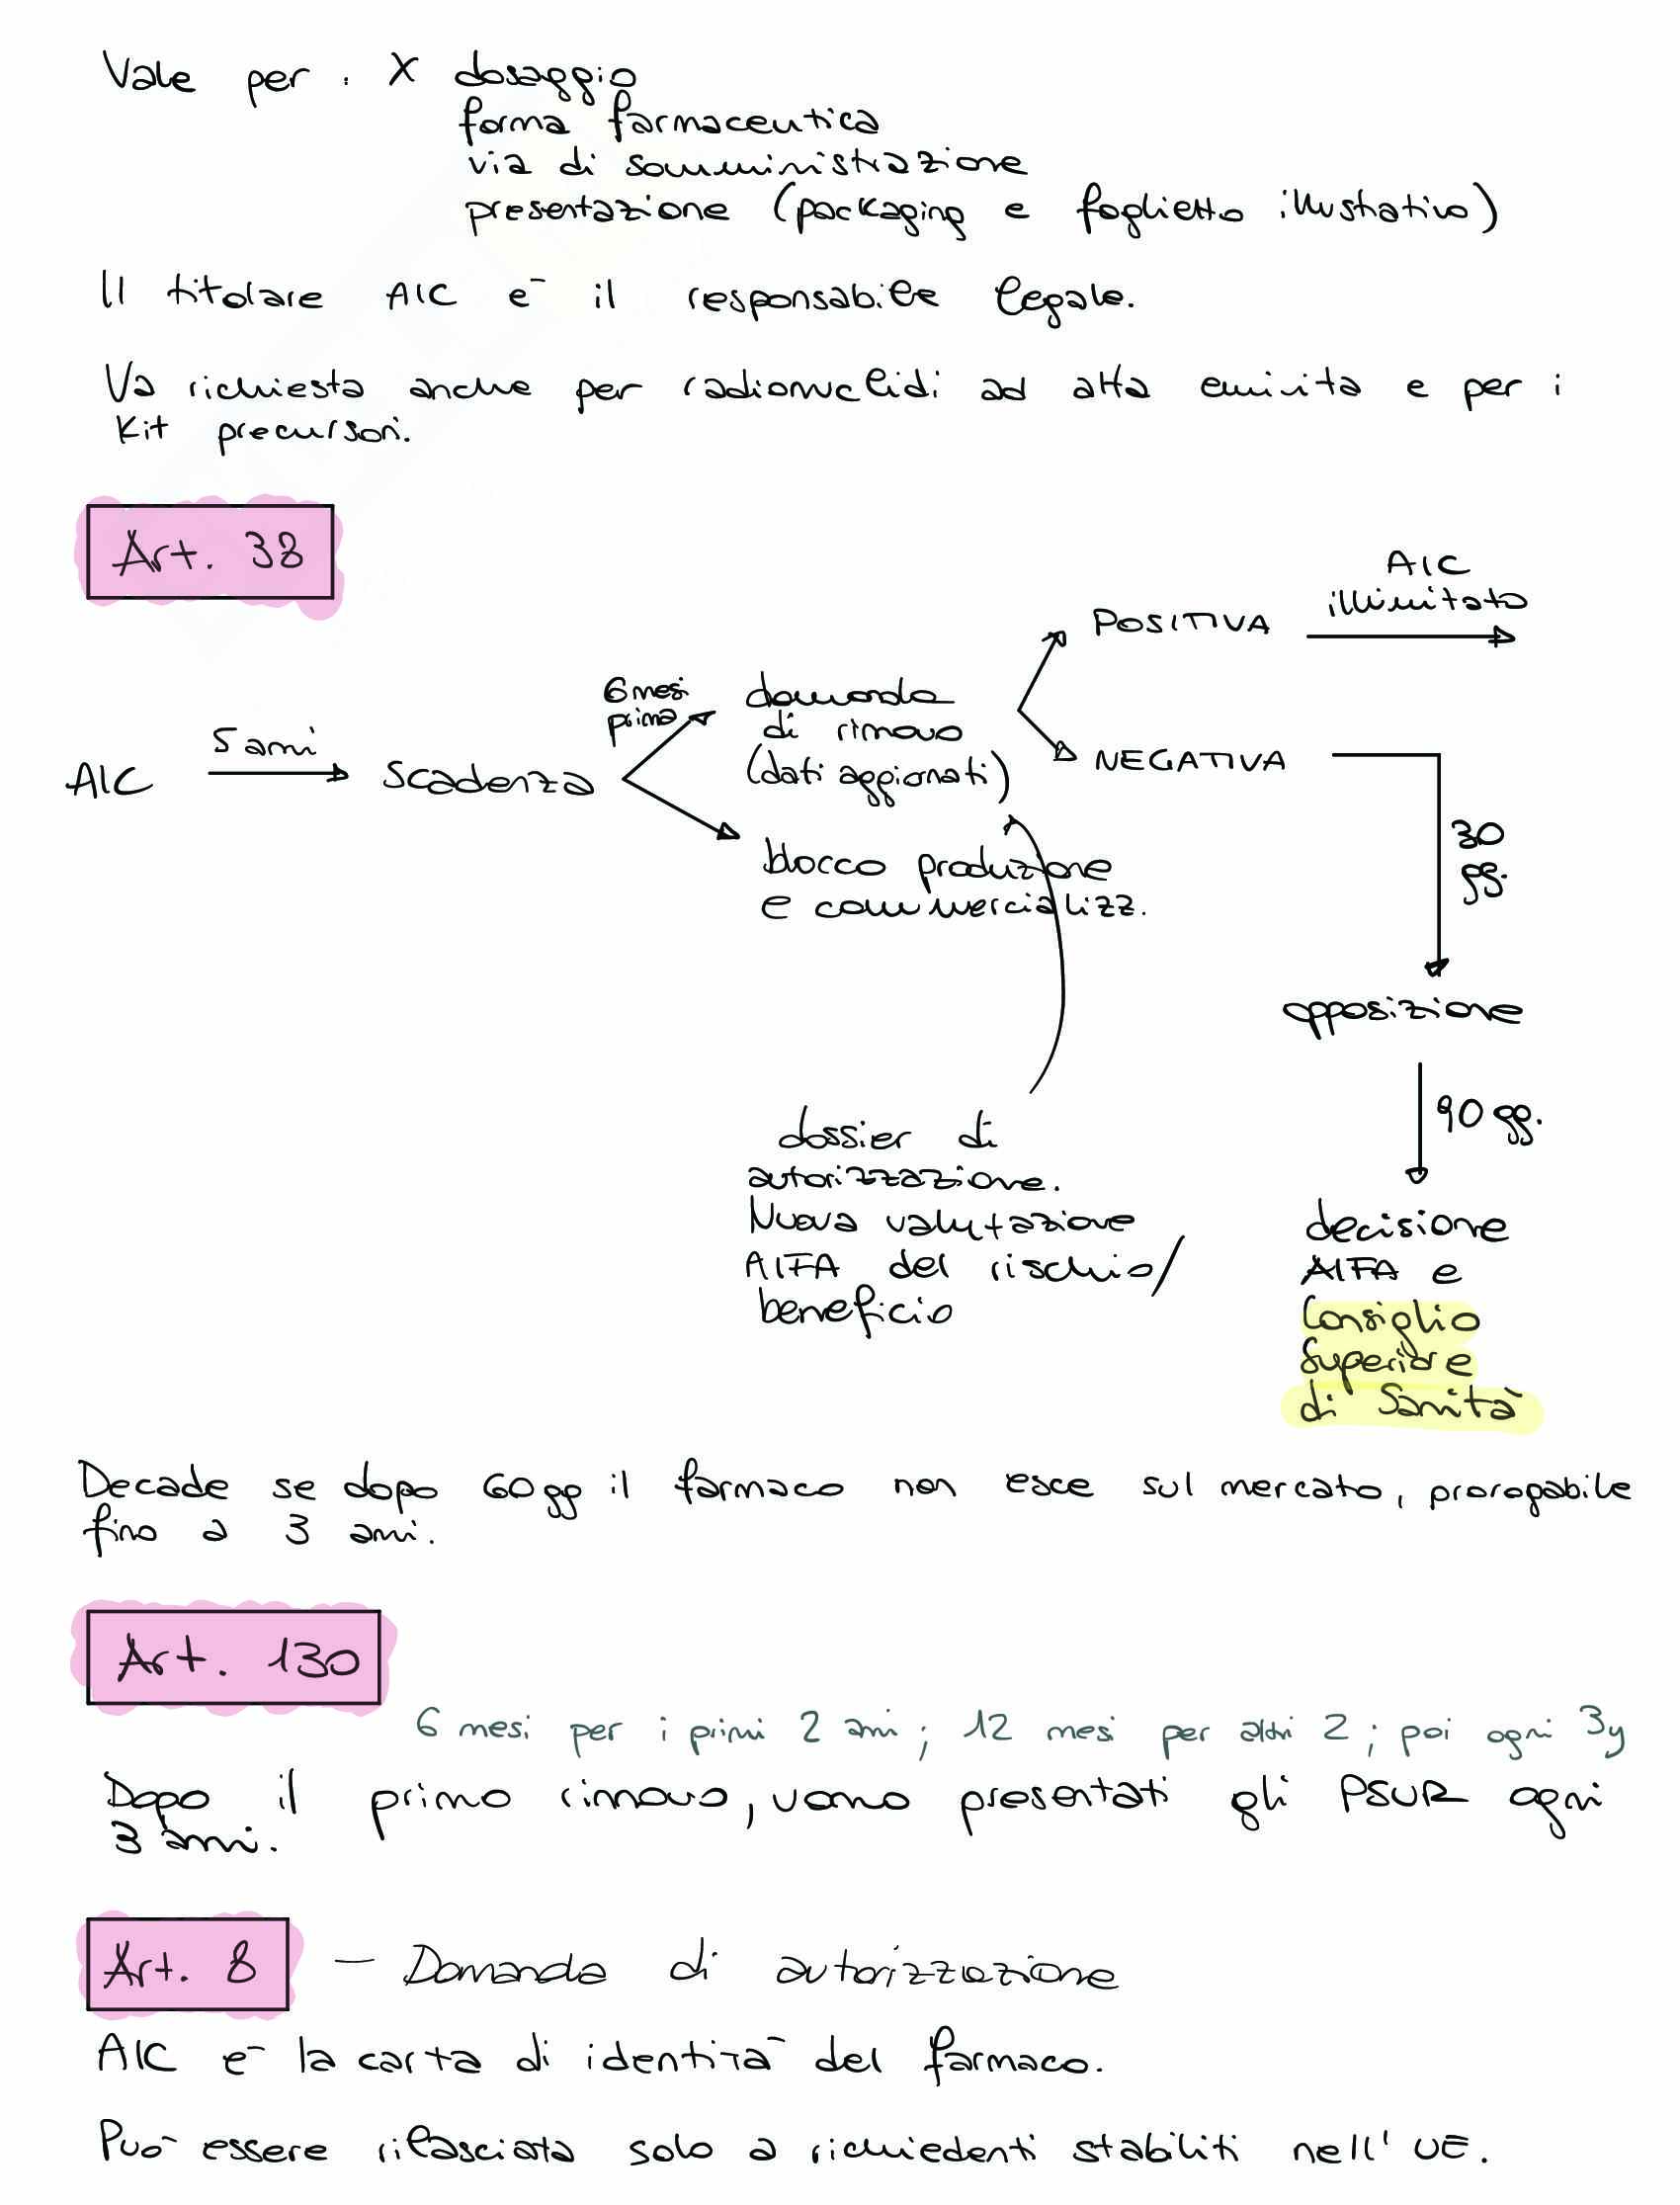 Vale per : X dosaggio
forma farmaceutica
via di somministrazione
presentazione (packaging e foglietto illustrativo)
Il titolare AIC è il responsabile legale.
Va richiesta anche per radionuclidi ad atta emivita e per i
Kit precursori.
Art. 38
AIC
5 anni
Scadenza
6 mesi
prima
domanda
di rinnovo
(dati aggiornati)
blocco produzione
e commercializz.
POSITIVA
AIC
illimitato
NEGATIVA
30
gg.
opposizione
90 gg.
decisione
AIFA e
Consiglio
Superiore
di Sanità
dossier di
autorizzazione.
Nuova valutazione
AIFA del rischio/
beneficio
Decade se dopo 60 gg il farmaco non esce sul mercato, prorogabile
fino a 3 anni.
Art. 130
6 mesi per i primi 2 anni; 12 mesi per altri 2; poi ogni 3y
Dopo il primo rinnovo, vanno presentati gli PSUR ogni
3 anni.
Art. 8 – Domanda di autorizzazione
AIC è la carta di identità del farmaco.
Può essere rilasciata solo a richiedenti stabiliti nell' UE.